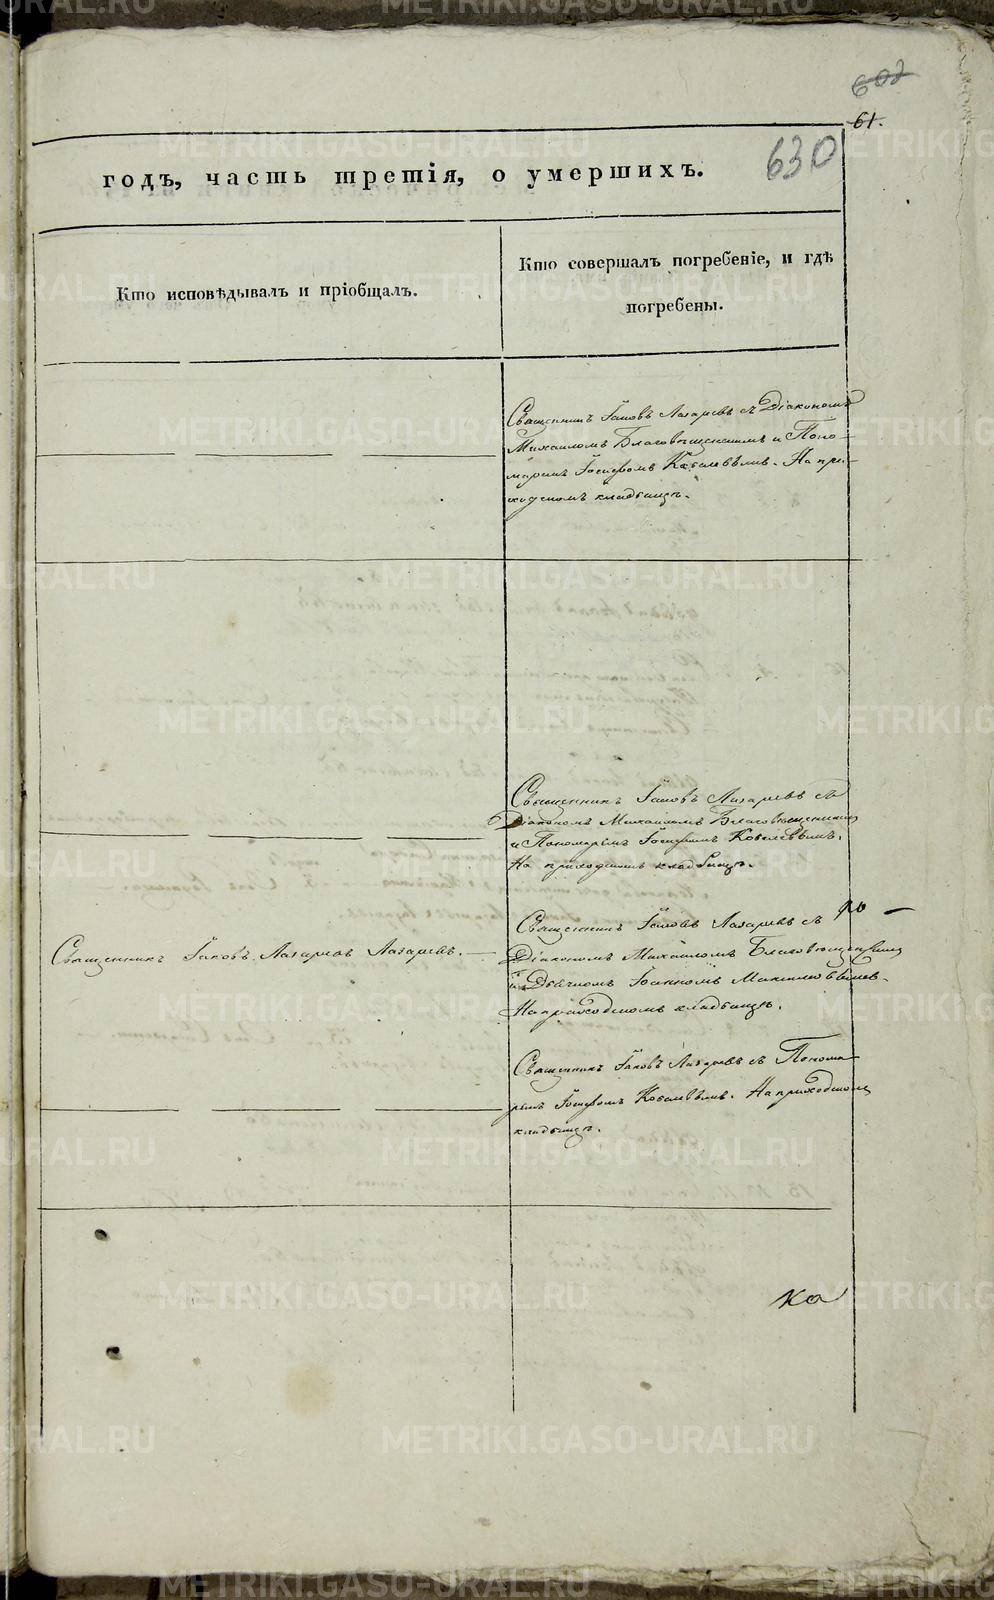 602
61.
630
годъ, часть третія, о умершихъ.
Кто исповѣдывалъ и пріобщалъ.
Кто совершалъ погребеніе, и гдѣ
погребены.
Священникъ Іаковъ Лазаревъ съ Діакономъ
Михаиломъ Благовѣщенскимъ и Поно-
маремъ Іосифомъ Ковалевымъ. На при-
ходскомъ кладбищѣ.
Священникъ Іаковъ Лазаревъ съ
Діакономъ Михаиломъ Благовѣщенскимъ
и Пономаремъ Іосифомъ Ковалевымъ.
На приходскомъ кладбищѣ.
Священникъ Іаковъ Лазаревъ Лазаревъ.
Священникъ Іаковъ Лазаревъ съ
Діакономъ Михаиломъ Благовѣщенскимъ
и Дьячкомъ Іоанномъ
На приходскомъ кладбищѣ.
Священникъ Іаковъ Лазаревъ съ Понома-
ремъ Іосифомъ Ковалевымъ. На приходскомъ
кладбищѣ.
ка
METRIKI.GASO-URAL.RU